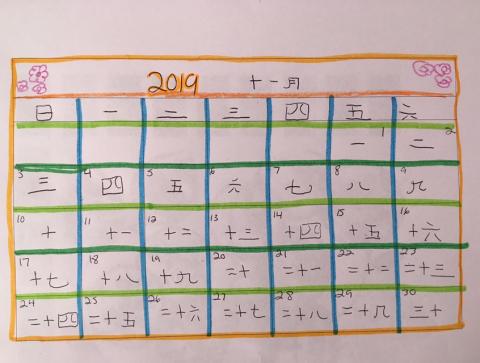 2019 十一月
日 一 二 三 四 五 六
1 2
一 二
3 4 5 6 7 8 9
三 四 五 六 七 八 九
10 11 12 13 14 15 16
十 十一 十二 十三 十四 十五 十六
17 18 19 20 21 22 23
十七 十八 十九 二十 二十一 二十二 二十三
24 25 26 27 28 29 30
二十四 二十五 二十六 二十七 二十八 二十九 三十